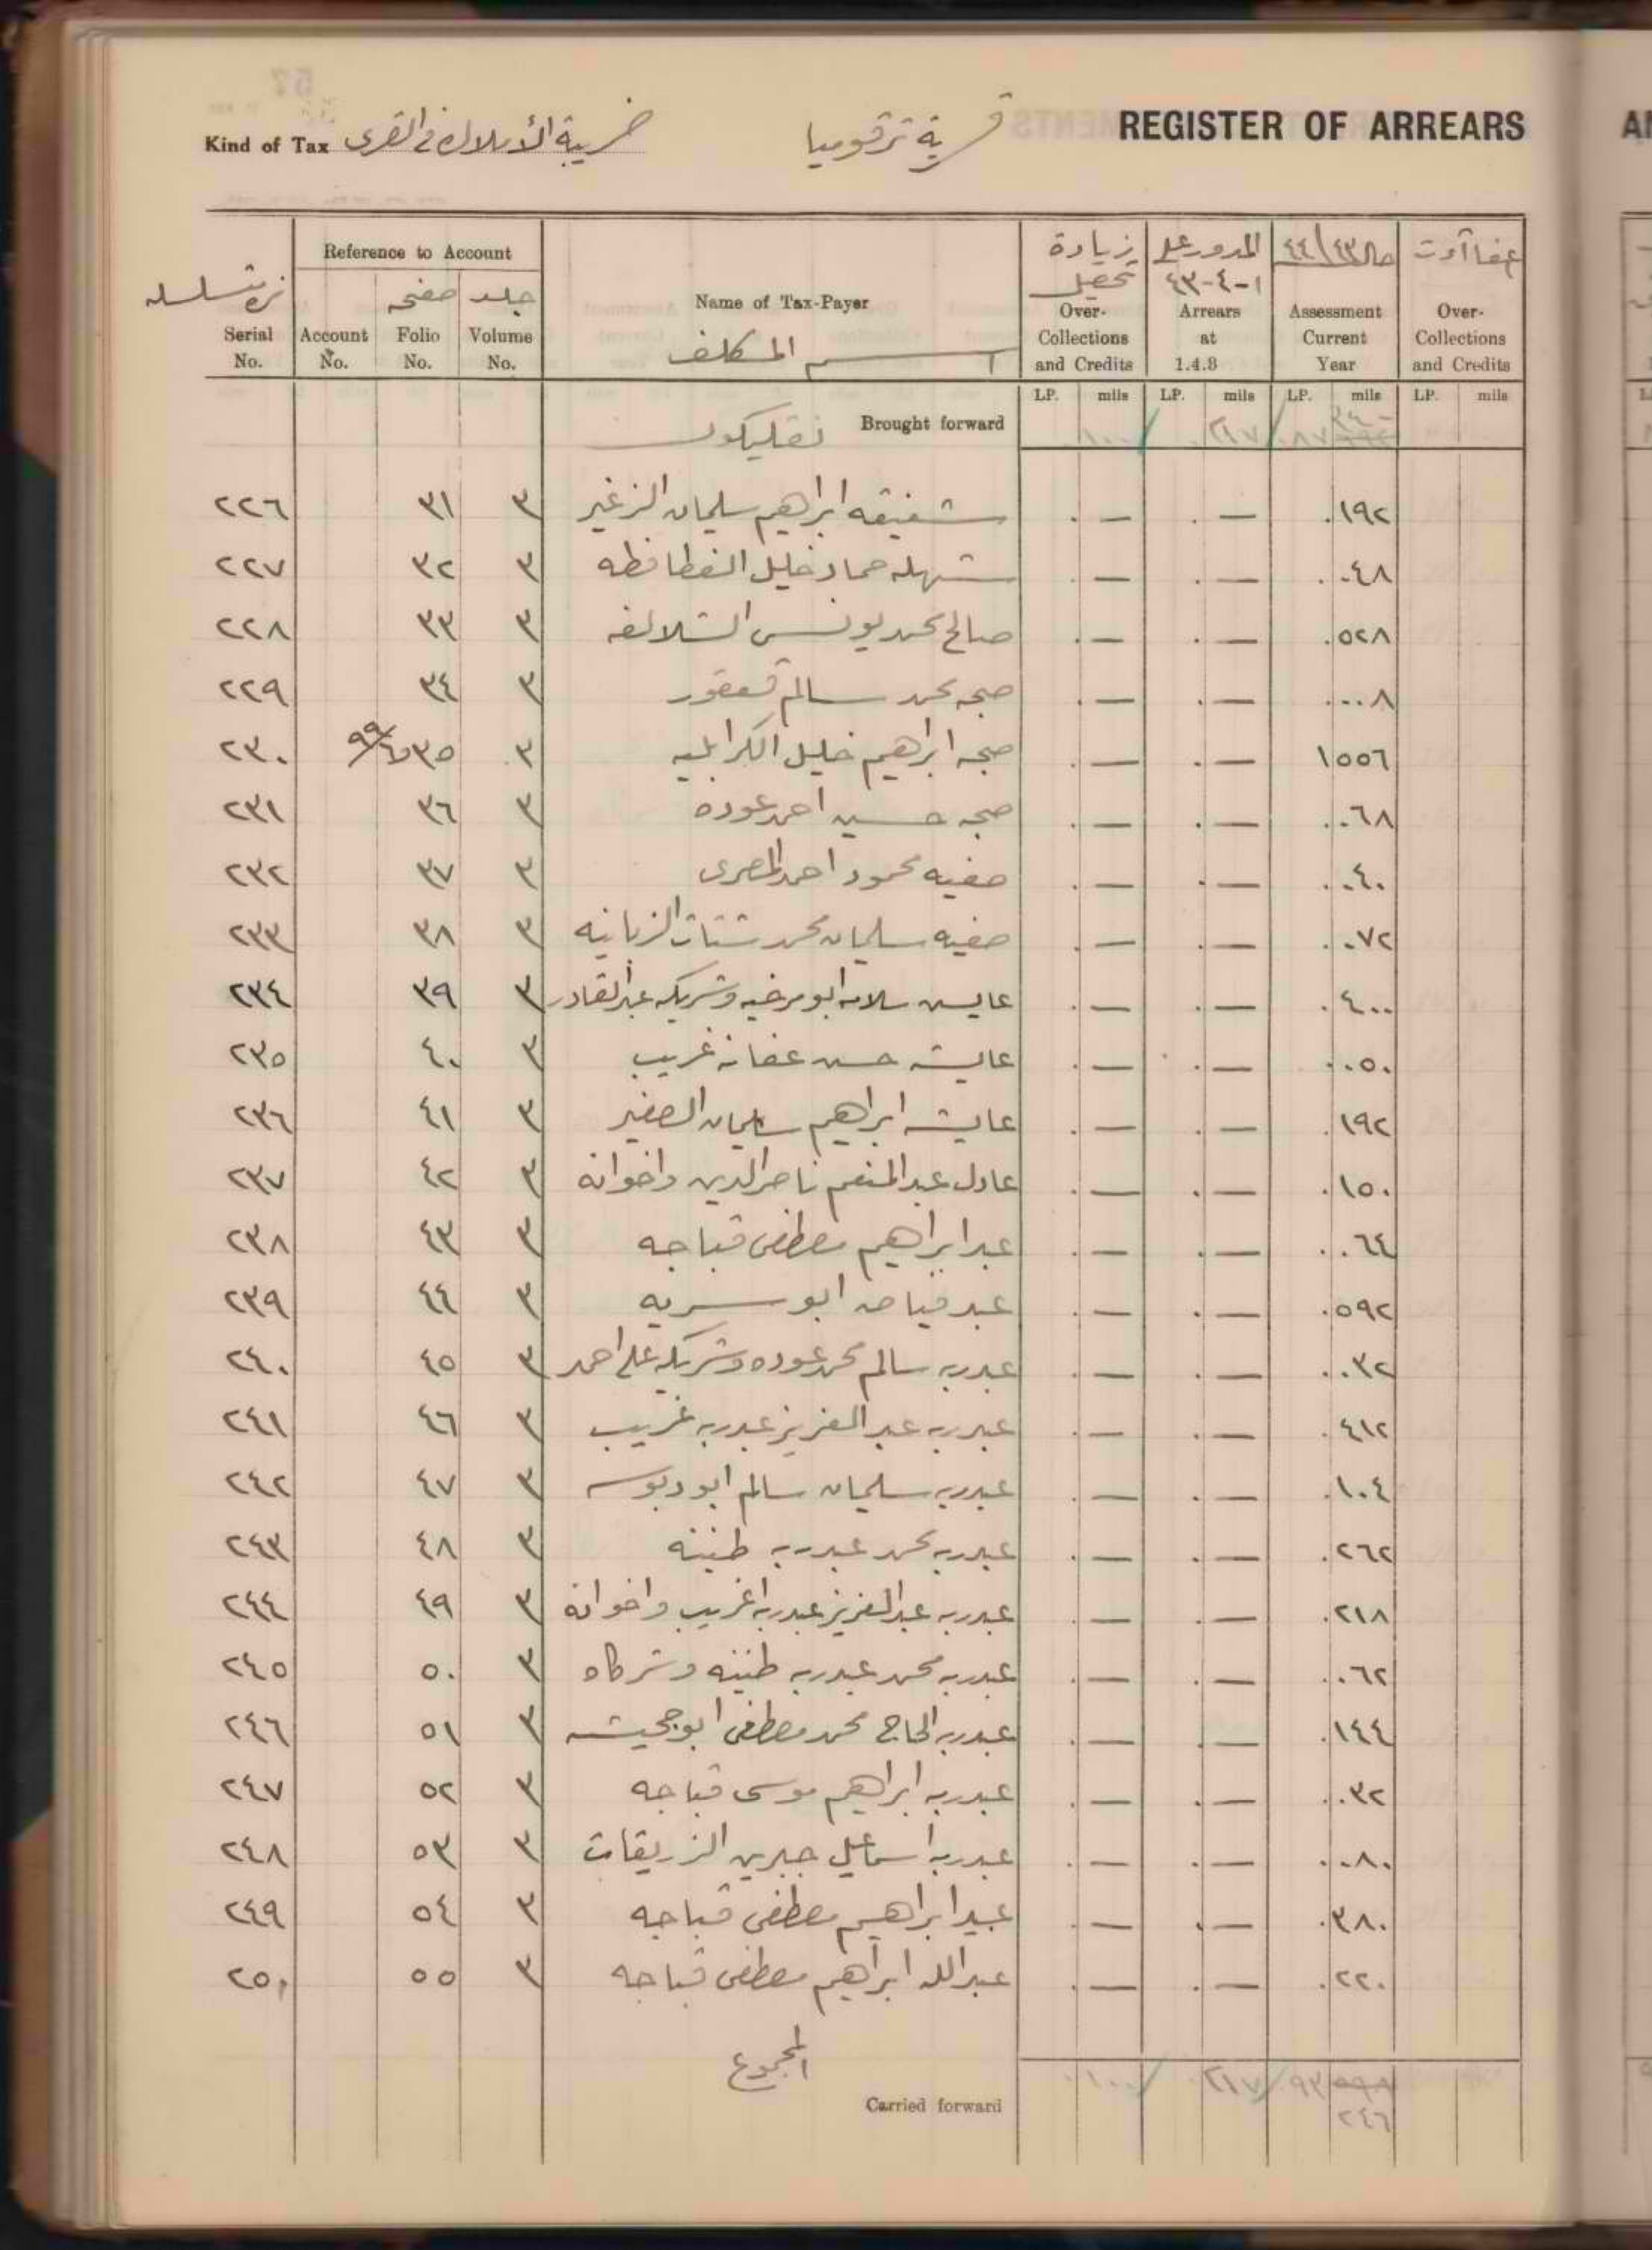 REGISTER OF ARREARS
قرية ترقوميا
Kind of Tax ضريبة الأملاك في القرى
Reference to Account
Serial No. | Account No. | صفحه Folio No. | جلد Volume No. | Name of Tax-Payer اسم المكلف | زيادة تحصيل Over-Collections and Credits | المدور على ١-٤-٤٣ Arrears at 1.4.8 | ٤٤/٤٣ Assessment Current Year | Over-Collections and Credits
LP. mils LP. mils LP. mils LP. mils
Brought forward ١٠٠ ٢١٧ ٨٧
٢٢٦ ٣١ ٣ شفيقه ابراهيم سليمان الزغير . — . — .١٩٢
٢٢٧ ٣٢ ٣ شهله حماد خليل الفطافطه . — . — .٠٤٨
٢٢٨ ٣٣ ٣ صالح محمد يونس الشلالفه . — . — .٥٢٨
٢٢٩ ٣٤ ٣ صبحه محمد سالم قعقور . — . — .٠٠٨
٢٣٠ ٣٥ ٣ صبحه ابراهيم خليل الكرابليه . — . — ١٥٥٦
٢٣١ ٣٦ ٣ صبحه حسين احمد عوده . — . — .٠٦٨
٢٣٢ ٣٧ ٣ صفيه محمود احمد المصرى . — . — .٠٤٠
٢٣٣ ٣٨ ٣ صفيه سليمان محمد شتات الزبانيه . — . — .٠٧٢
٢٣٤ ٣٩ ٣ عايش سلامه ابو مرخيه وشريكه عبد القادر . — . — .٤٠٠
٢٣٥ ٤٠ ٣ عايشه حسن عفانه غريب . — . — .٠٥٠
٢٣٦ ٤١ ٣ عايشه ابراهيم سليمان الصغير . — . — .١٩٢
٢٣٧ ٤٢ ٣ عادل عبد المنعم ناصر الدين واخوانه . — . — .١٥٠
٢٣٨ ٤٣ ٣ عبد ابراهيم مصطفى قباجه . — . — .٠٦٤
٢٣٩ ٤٤ ٣ عبد فياض ابو سريه . — . — .٥٩٢
٢٤٠ ٤٥ ٣ عبدربه سالم محمد عوده وشريكه على احمد . — . — .٠٣٢
٢٤١ ٤٦ ٣ عبدربه عبد العزيز عبدربه غريب . — . — .٤١٢
٢٤٢ ٤٧ ٣ عبدربه سليمان سالم ابو دبوس . — . — .١٠٤
٢٤٣ ٤٨ ٣ عبدربه محمد عبدربه طنينه . — . — .٢٦٢
٢٤٤ ٤٩ ٣ عبدربه عبد العزيز عبدربه غريب واخوانه . — . — .٢١٨
٢٤٥ ٥٠ ٣ عبدربه محمد عبدربه طنينه وشركاه . — . — .٠٦٢
٢٤٦ ٥١ ٣ عبدربه الحاج محمد مصطفى ابو جحيشه . — . — .١٤٤
٢٤٧ ٥٢ ٣ عبدربه ابراهيم موسى قباجه . — . — .٠٣٢
٢٤٨ ٥٣ ٣ عبدربه اسماعيل جبرين الزريقات . — . — .٠٨٠
٢٤٩ ٥٤ ٣ عبد ابراهيم مصطفى قباجه . — . — .٣٨٠
٢٥٠ ٥٥ ٣ عبد الله ابراهيم مصطفى قباجه . — . — .٢٢٠
المجموع
Carried forward ١٠٠ ٢١٧ ٩٣ ٥٩٨
٢٤٦